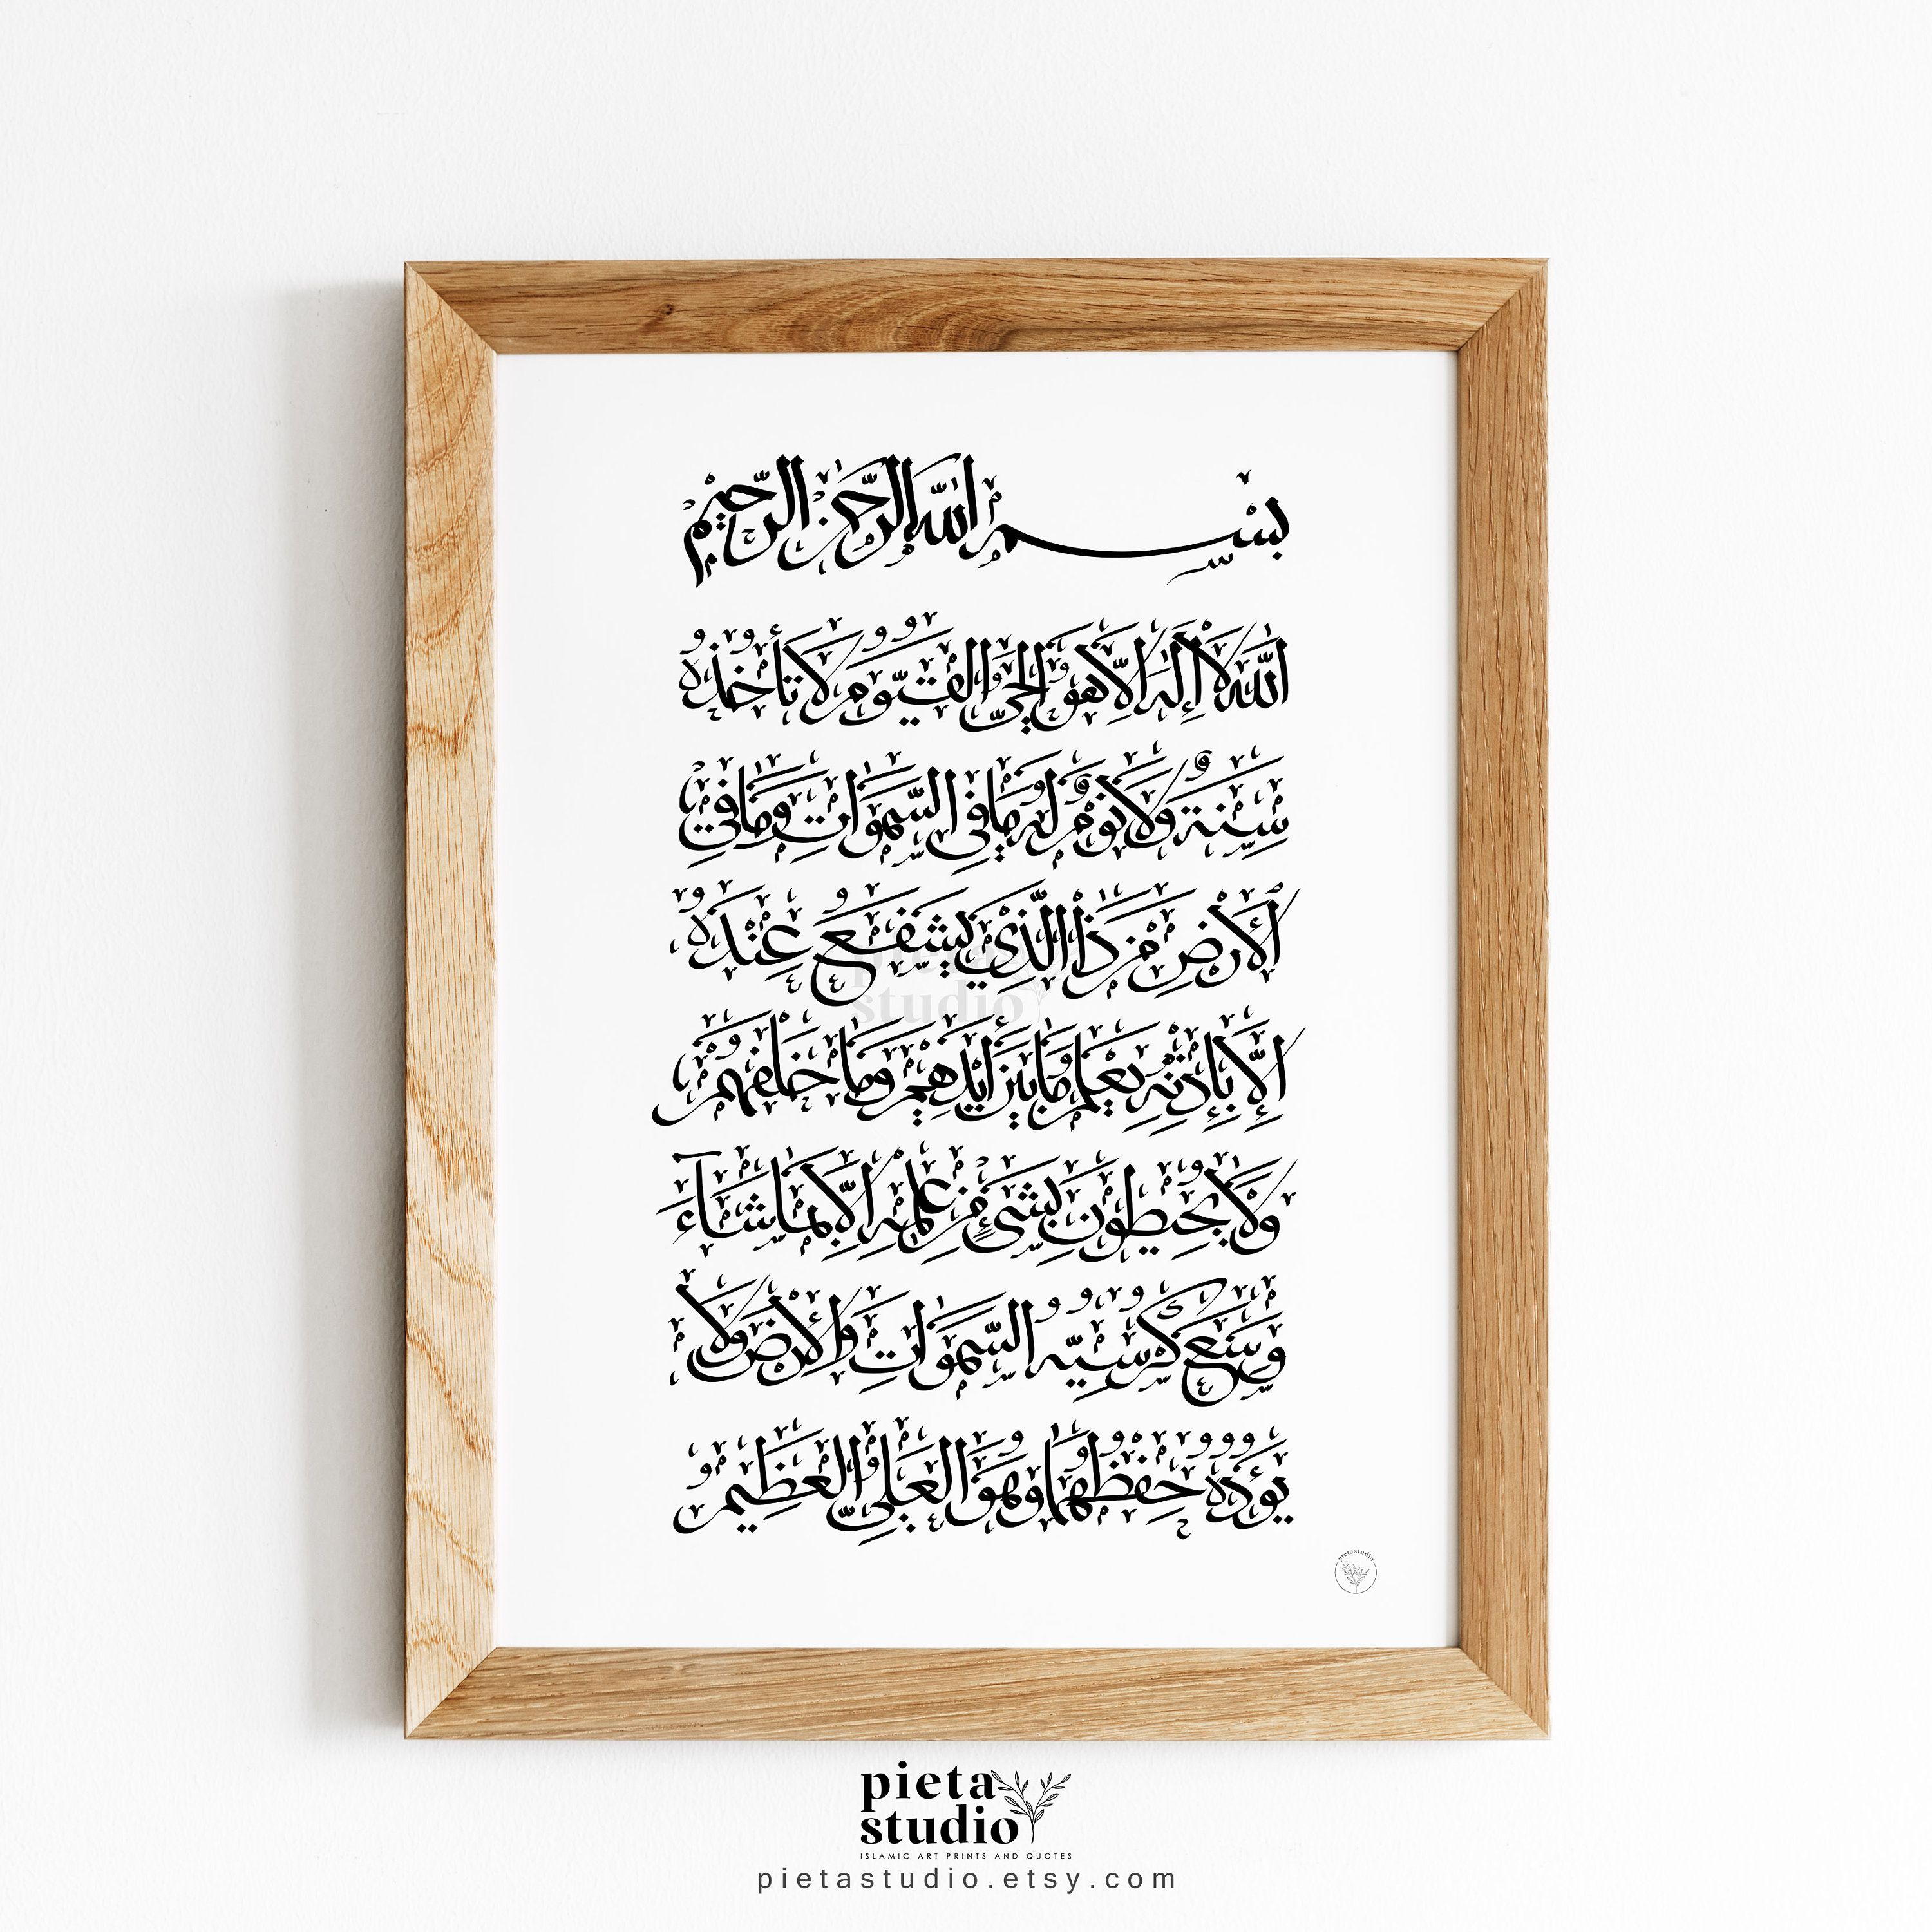 بِسْمِ اللّٰهِ الرَّحْمٰنِ الرَّحِيْمِ
اَللّٰهُ لَا إِلٰهَ اِلَّا هُوَ الْحَيُّ الْقَيُّوْمُ لَا تَأْخُذُهُ
سِنَةٌ وَلَا نَوْمٌ لَهُ مَا فِي السَّمٰوَاتِ وَمَا فِي
ٱلْأَرْضِ مَنْ ذَا الَّذِيْ يَشْفَعُ عِنْدَهُ
اِلَّا بِإِذْنِهِ يَعْلَمُ مَا بَيْنَ أَيْدِهِيْمْ وَمَا خَلْفَهُمْ
وَلَا يُحِيْطُوْنَ بِشَيْءٍ مِنْ عِلْمِهِ اِلَّا بِمَا شَآءَ
وَسِعَ كُرْسِيُّهُ السَّمٰوَاتِ وَالْأَرْضَ وَلَا
يَؤُدُهُ حِفْظُهُمَا وَهُوَ الْعَلِيُّ الْعَظِيْمُ
pietastudio
pieta
studio
pieta
studio
ISLAMIC ART PRINTS AND QUOTES
pietastudio.etsy.com